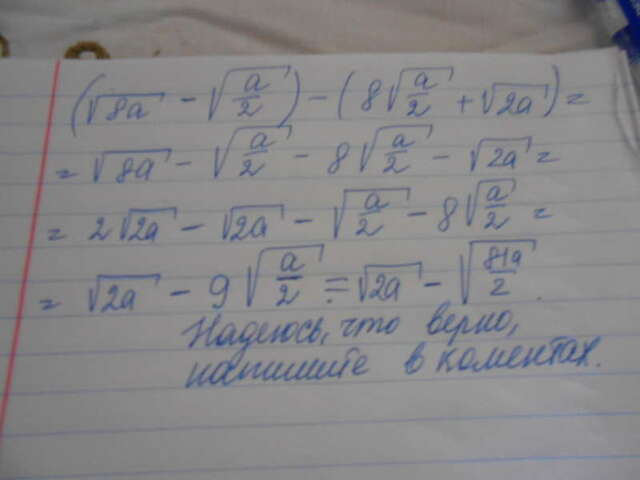 (√8a − √a/2) − (8√a/2 + √2a) =
= √8a − √a/2 − 8√a/2 − √2a =
= 2√2a − √2a − √a/2 − 8√a/2 =
= √2a − 9√a/2 = √2a − √81a/2 .
Надеюсь, что верно,
напишите в коментах.